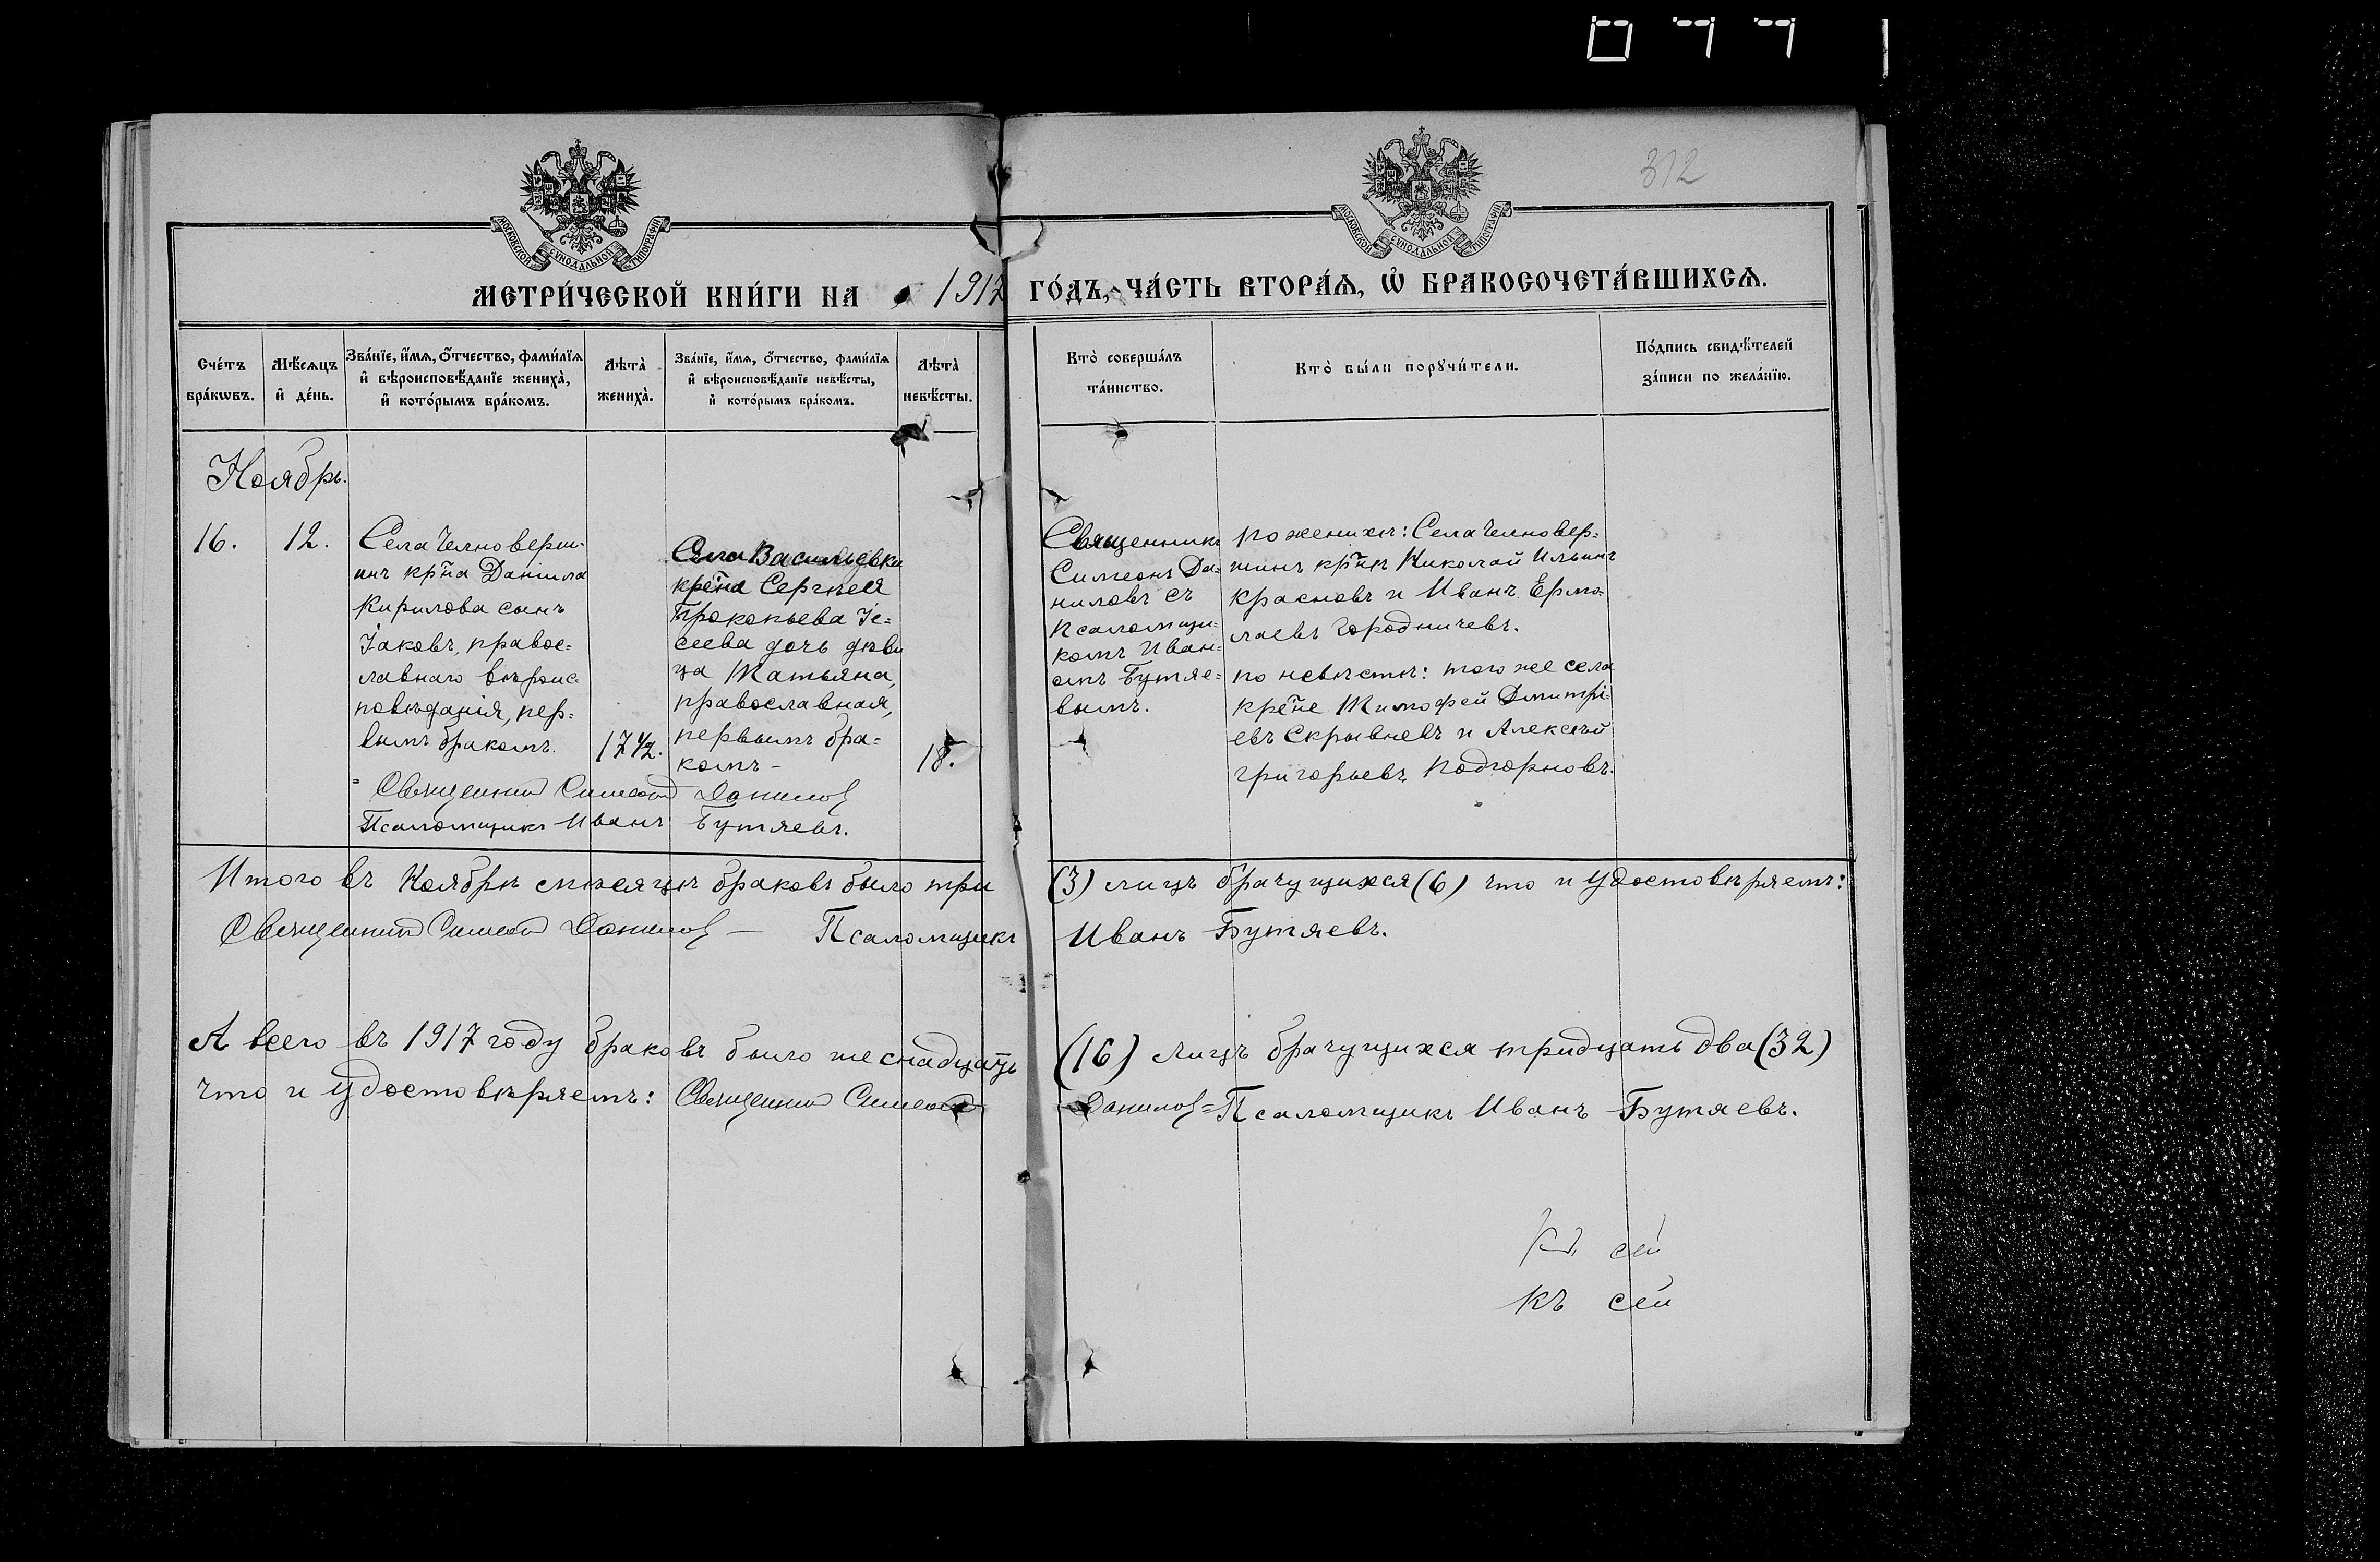 312
МОСКОВСКОЙ СѴНОДАЛЬНОЙ ТИПОГРАФІИ
МОСКОВСКОЙ СѴНОДАЛЬНОЙ ТИПОГРАФІИ
МЕТРИ́ЧЕСКОЙ КНИ́ГИ НА 1917 ГО́ДЪ, ЧА́СТЬ ВТОРА́Ѧ, Ѽ БРАКОСОЧЕТА́ВШИХСѦ.
Сче́тъ
бра́кѡвъ.
Мѣ́сѧцъ
и҆ де́нь.
Зва́нїе, и҆́мѧ, ѻ҆́тчество, фами́лїѧ
и҆ вѣроисповѣ́данїе жениха̀,
и҆ кото́рымъ бра́комъ.
Лѣта̀
жениха̀.
Зва́нїе, и҆́мѧ, ѻ҆́тчество, фами́лїѧ
и҆ вѣроисповѣ́данїе невѣ́сты,
и҆ кото́рымъ бра́комъ.
Лѣта̀
невѣ́сты.
Кто̀ соверша́лъ
та́инство.
Кто̀ бы́ли порꙋчи́тели.
По́дпись свидѣ́телей
за́писи по жела́нїю.
Ноябрь.
16.
12.
Села Челновершинъ
кр̃на Даніила
Кирилова сынъ
Іаковъ, правос=
лавнаго вѣроис=
повѣданія, пер=
вымъ бракомъ.
17½.
Села Васильевки
кре̃на Сергѣея
Прокопьева Іе=
сеева дочь дѣви
ца Татьяна,
православная,
первымъ бра=
комъ-
18.
Священникъ
Симеонъ Да=
ниловъ съ
Псаломщи=
комъ Иван=
омъ Бутяе=
вымъ.
по женихѣ: Села Челновер=
шинъ кр̃нѣ Николай Ильинъ
Красновъ и Иванъ Ермо=
лаевъ Городничевъ.
по невѣстѣ: того же села
кре̃не Тимофей Дмитрі=
евъ Скрывневъ и Алексѣй
Григорьевъ Подгорновъ.
Священникъ Симеонъ Даниловъ
Псаломщикъ Иванъ Бутяевъ.
Итого въ Ноябрѣ мѣсяцѣ браковъ было три (3) лицъ брачущихся (6) что и удостовѣряемъ:
Священникъ Симеонъ Даниловъ — Псаломщикъ Иванъ Бутяевъ.
А всего въ 1917 году браковъ было шеснадцать (16) лицъ брачущихся тридцать два (32)
что и удостовѣряемъ: Священникъ Симеонъ Даниловъ = Псаломщикъ Иванъ Бутяевъ.
Къ сей
къ сей